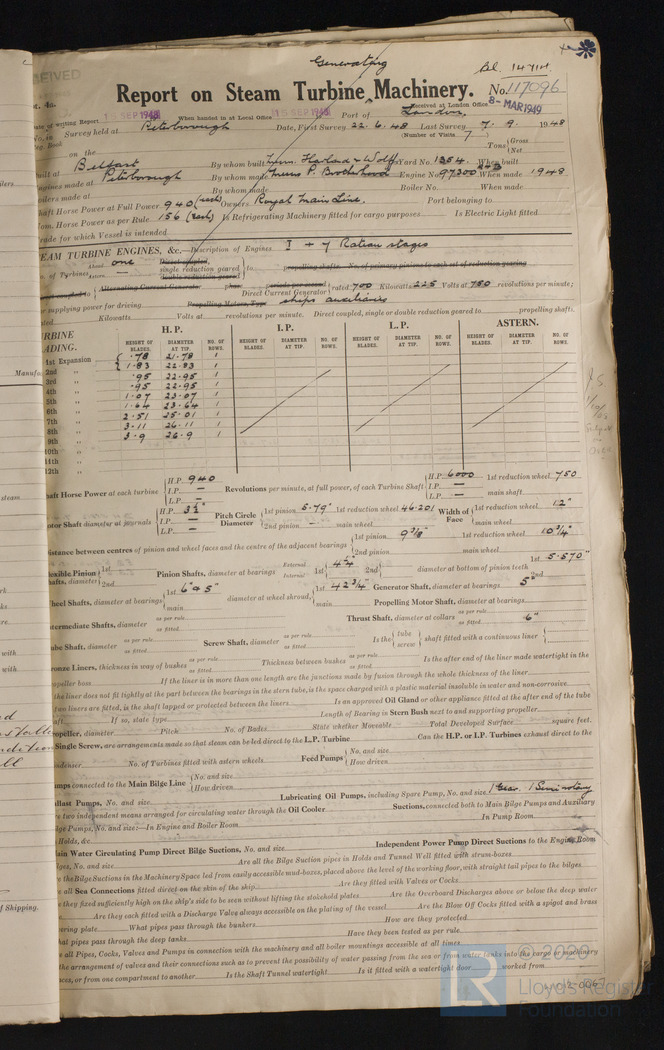 Generating
Bel. 14714
Report on Steam Turbine Machinery.
No. 117096
8-MAR1949
EIVED
pt. 4a.
Received at London Office
Date of writing Report 15 SEP 1948 When handed in at Local Office 15 SEP 1948 Port of London.
No. in Survey held at Peterborough Date, First Survey 22.6.48 Last Survey 7.9. 1948
Reg. Book (Number of Visits 7)
on the
Tons {Gross
{Net
Built at Belfast By whom built Messrs. Harland & Wolff Yard No. 1354 When built
Engines made at Peterborough By whom made Messrs P. Brotherhood Engine No. 97300 When made 1948
Boilers made at By whom made Boiler No. When made
Shaft Horse Power at Full Power 940 (each) Owners Royal Mail Line. Port belonging to
Nom. Horse Power as per Rule 156 (each) Is Refrigerating Machinery fitted for cargo purposes Is Electric Light fitted
Trade for which Vessel is intended
STEAM TURBINE ENGINES, &c.—Description of Engines I + 7 Rateau stages
No. of Turbines Ahead one Direct coupled, single reduction geared double reduction geared } to propelling shafts. No. of primary pinions to each set of reduction gearing
Astern —
direct coupled to { Alternating Current Generator phase periods per second Direct Current Generator } rated 700 Kilowatts 225 Volts at 750 revolutions per minute;
for supplying power for driving Propelling Motors, Type ships auxiliaries
rated Kilowatts Volts at revolutions per minute. Direct coupled, single or double reduction geared to propelling shafts.
TURBINE BLADING. H.P. I.P. L.P. ASTERN.
HEIGHT OF BLADES. DIAMETER AT TIP. NO. OF ROWS. HEIGHT OF BLADES. DIAMETER AT TIP. NO. OF ROWS. HEIGHT OF BLADES. DIAMETER AT TIP. NO. OF ROWS. HEIGHT OF BLADES. DIAMETER AT TIP. NO. OF ROWS.
1st Expansion { .78 21.78 1
2nd " { 1.83 22.83 1
3rd " .95 22.95 1
4th " .95 22.95 1
5th " 1.07 23.07 1
6th " 1.64 23.64 1
7th " 2.51 25.01 1
8th " 3.11 26.11 1
9th " 3.9 26.9 1
10th "
11th "
12th "
Shaft Horse Power at each turbine { H.P. 940 I.P. — L.P. — Revolutions per minute, at full power, of each Turbine Shaft { H.P. 6000 I.P. — L.P. — 1st reduction wheel 750 main shaft
Rotor Shaft diameter at journals { H.P. 3½" I.P. — L.P. — Pitch Circle Diameter { 1st pinion 5.79" 1st reduction wheel 46.201 2nd pinion — main wheel Width of Face { 1st reduction wheel 12" main wheel
Distance between centres of pinion and wheel faces and the centre of the adjacent bearings { 1st pinion 9 3/8" 1st reduction wheel 10 3/4" 2nd pinion main wheel
Flexible Pinion Shafts, diameter { 1st 2nd Pinion Shafts, diameter at bearings External Internal { 1st 4¼" 2nd diameter at bottom of pinion teeth { 1st 5.570" 2nd
Wheel Shafts, diameter at bearings { 1st 6" & 5" main diameter at wheel shroud, { 1st 42 3/4" main Generator Shaft, diameter at bearings 5"
Propelling Motor Shaft, diameter at bearings
Intermediate Shafts, diameter as per rule as fitted Thrust Shaft, diameter at collars as per rule as fitted 6"
Tube Shaft, diameter as per rule as fitted Screw Shaft, diameter as per rule as fitted Is the { tube screw } shaft fitted with a continuous liner {
Bronze Liners, thickness in way of bushes as per rule as fitted Thickness between bushes as per rule as fitted Is the after end of the liner made watertight in the
propeller boss If the liner is in more than one length are the junctions made by fusion through the whole thickness of the liner
If the liner does not fit tightly at the part between the bearings in the stern tube, is the space charged with a plastic material insoluble in water and non-corrosive
If two liners are fitted, is the shaft lapped or protected between the liners Is an approved Oil Gland or other appliance fitted at the after end of the tube
shaft If so, state type Length of Bearing in Stern Bush next to and supporting propeller
Propeller, diameter Pitch No. of Blades State whether Moveable Total Developed Surface square feet.
If Single Screw, are arrangements made so that steam can be led direct to the L.P. Turbine Can the H.P. or I.P. Turbines exhaust direct to the
Condenser No. of Turbines fitted with astern wheels Feed Pumps { No. and size How driven
Pumps connected to the Main Bilge Line { No. and size How driven
Ballast Pumps, No. and size Lubricating Oil Pumps, including Spare Pump, No. and size 1 Gear. 1 Semi rotary
Are two independent means arranged for circulating water through the Oil Cooler Suctions, connected both to Main Bilge Pumps and Auxiliary
Bilge Pumps, No. and size:—In Engine and Boiler Room In Pump Room
In Holds, &c
Main Water Circulating Pump Direct Bilge Suctions, No. and size Independent Power Pump Direct Suctions to the Engine Room
Bilges, No. and size Are all the Bilge Suction pipes in Holds and Tunnel Well fitted with strum-boxes
Are the Bilge Suctions in the Machinery Space led from easily accessible mud-boxes, placed above the level of the working floor, with straight tail pipes to the bilges
Are all Sea Connections fitted direct on the skin of the ship Are they fitted with Valves or Cocks
Are they fixed sufficiently high on the ship's side to be seen without lifting the stokehold plates Are the Overboard Discharges above or below the deep water
line Are they each fitted with a Discharge Valve always accessible on the plating of the vessel Are the Blow Off Cocks fitted with a spigot and brass
covering plate What pipes pass through the bunkers How are they protected
What pipes pass through the deep tanks Have they been tested as per rule
Are all Pipes, Cocks, Valves and Pumps in connection with the machinery and all boiler mountings accessible at all times
Is the arrangement of valves and their connections such as to prevent the possibility of water passing from the sea or from water tanks into the cargo or machinery
spaces, or from one compartment to another Is the Shaft Tunnel watertight Is it fitted a watertight door worked from
© 2020
Lloyd's Register
Foundation